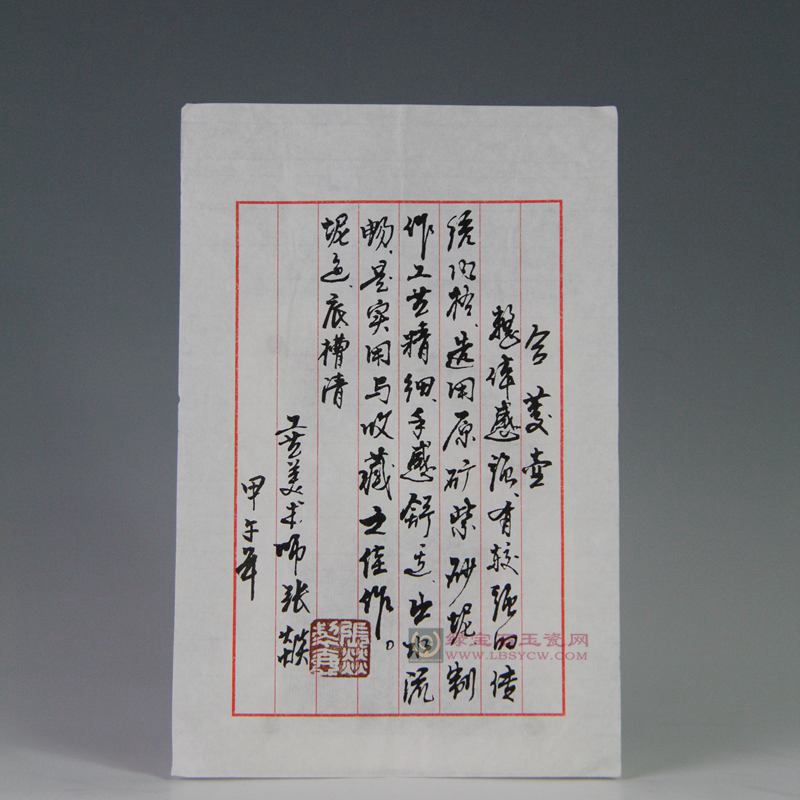 合菱壶
整体感强、有较强的传
统风格、选用原矿紫砂泥制
作工艺精细、手感舒适、出水流
畅、是实用与收藏之佳作。
泥色、底槽清
工艺美术师张燚
甲午年
绿宝石玉瓷网
WWW.LBSYCW.COM